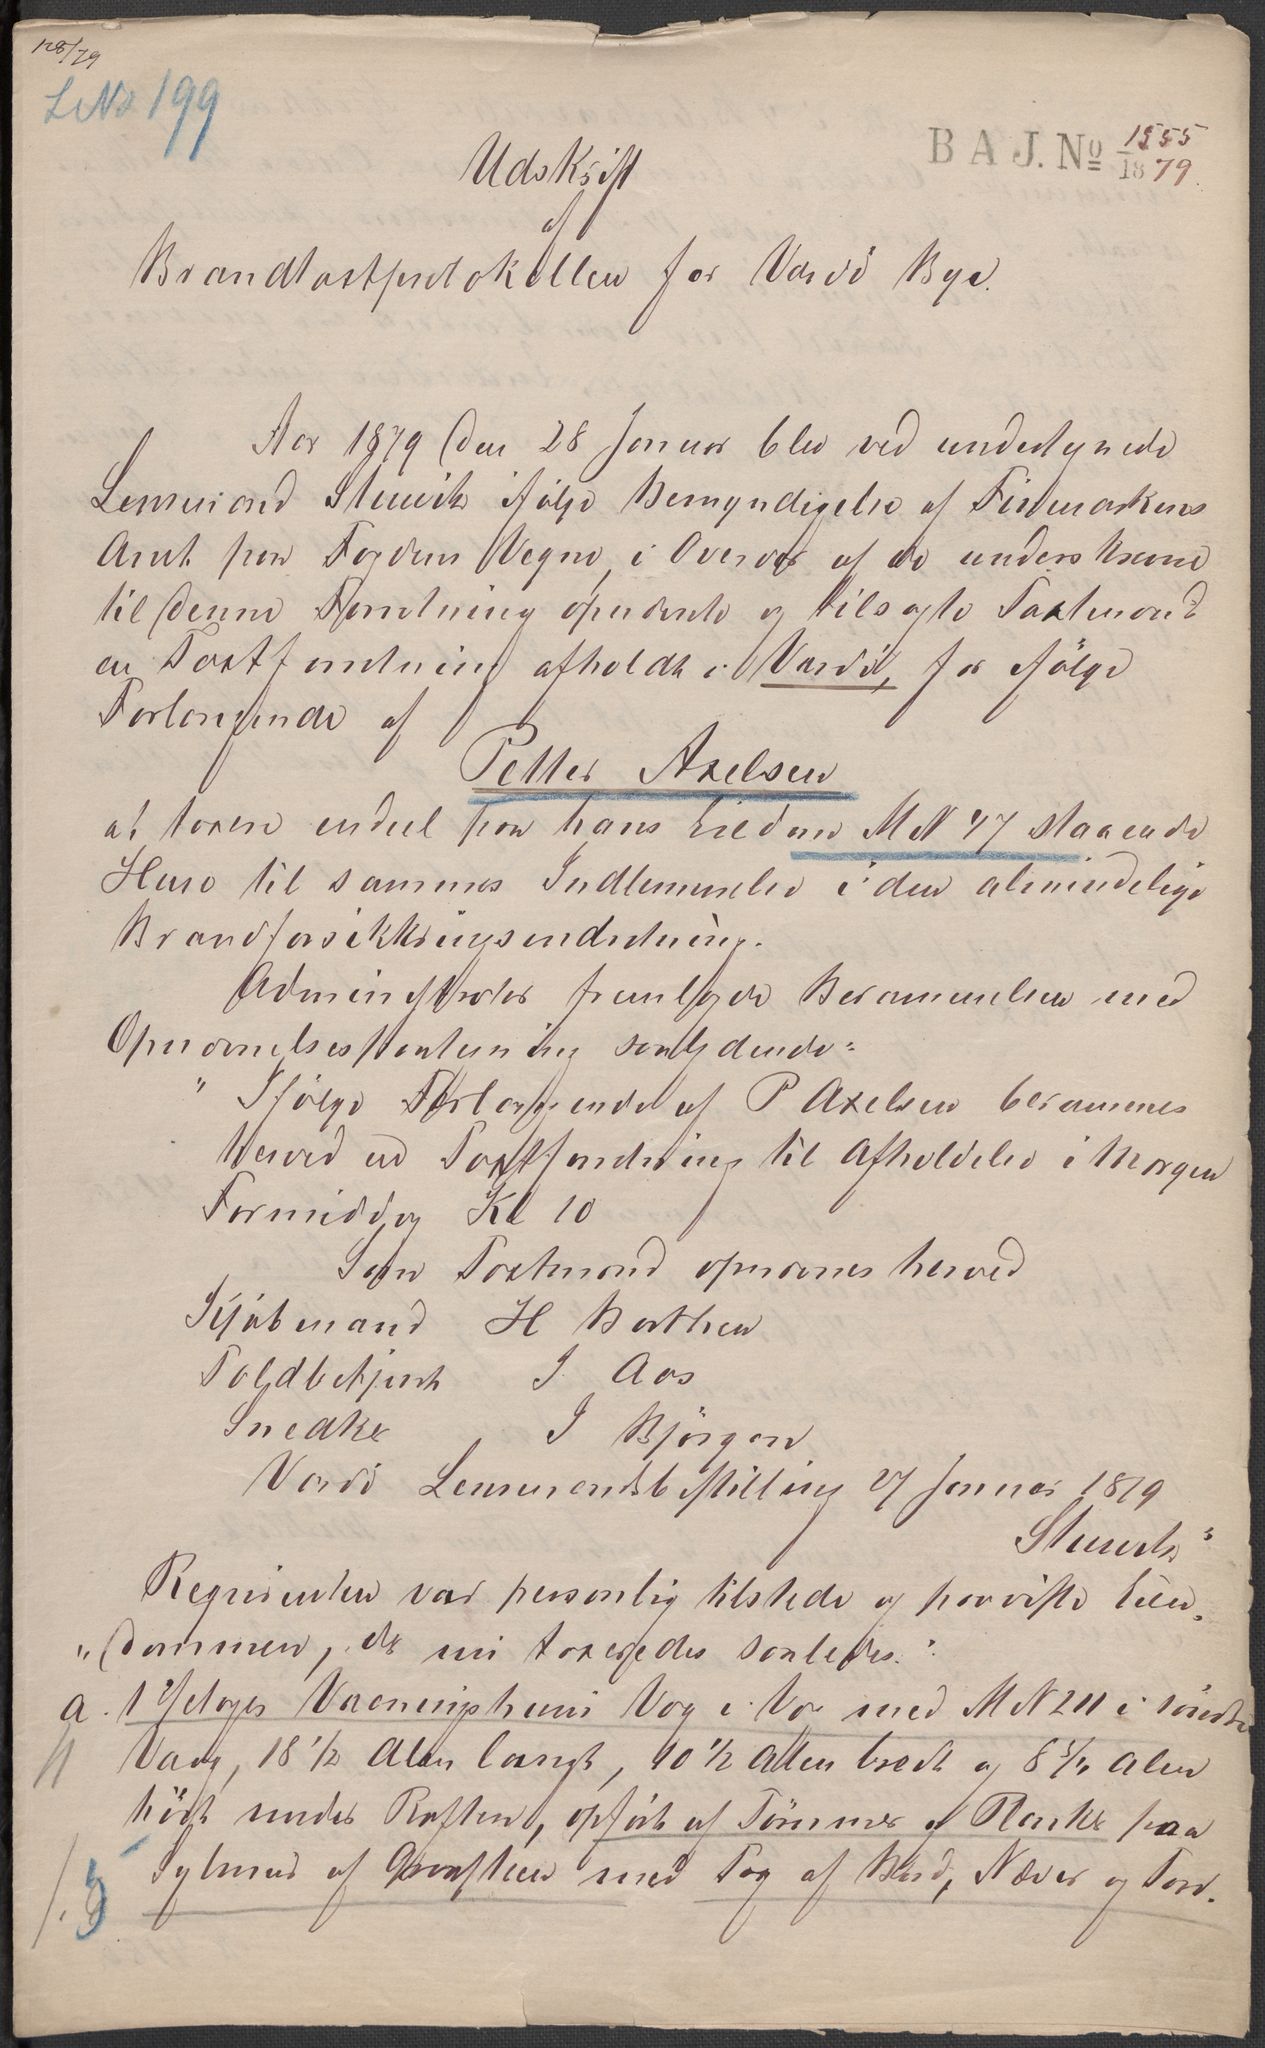 128/79
L No 199
B A J. No 1555/1879.
Udskrift
af
Brandtaxtprotokollen for Vardö Bye.
Aar 1879 den 28 Januar blev ved undertegnede
Lensmand Stuwitz ifölge Bemyndigelse af Finmarkens
Amt paa Fogdens Vegne, i Overvær af de underskrevne
til denne Forretning opnævnte og tilsagte Taxtmænd
en Taxtforretning afholdt i Vardö, for ifölge
Forlangende af
Petter Axelsen
at taxere endeel paa hans Eiedom M N 47 staaende
Huse til sammes Indlemmelse i den almindelige
Brandforsikkringsindretning.
Administrator fremlagde Berammelsen med
Opnævnelsespaategning saalydende:
" Ifölge Forlangende af P Axelsen berammes
herved en Taxtforretning til Afholdelse i Morgen
Formiddag Kl 10
Som Taxtmænd opnævnes herved
Kjöbmand H Barthen
Toldbetjent J. Aas
Snedker J Björgan
Vardö Lensmandsbestilling 27 Januar 1879
Stuwitz"
Requirenten var personlig tilstede og paaviste Eien-
"dommen, der nu taxeredes saaledes:
a. 1 Etages Vaaningshuus Væg i Væg med M N 211 i söndre
Væg, 18 1/2 Alen langt, 10 1/2 Alen bredt og 8 3/4 Alen
höit under Raften, opfört af Tömmer og Planker paa
Sylmur af Graasteen med Tag af Bord, Næver og Torv.